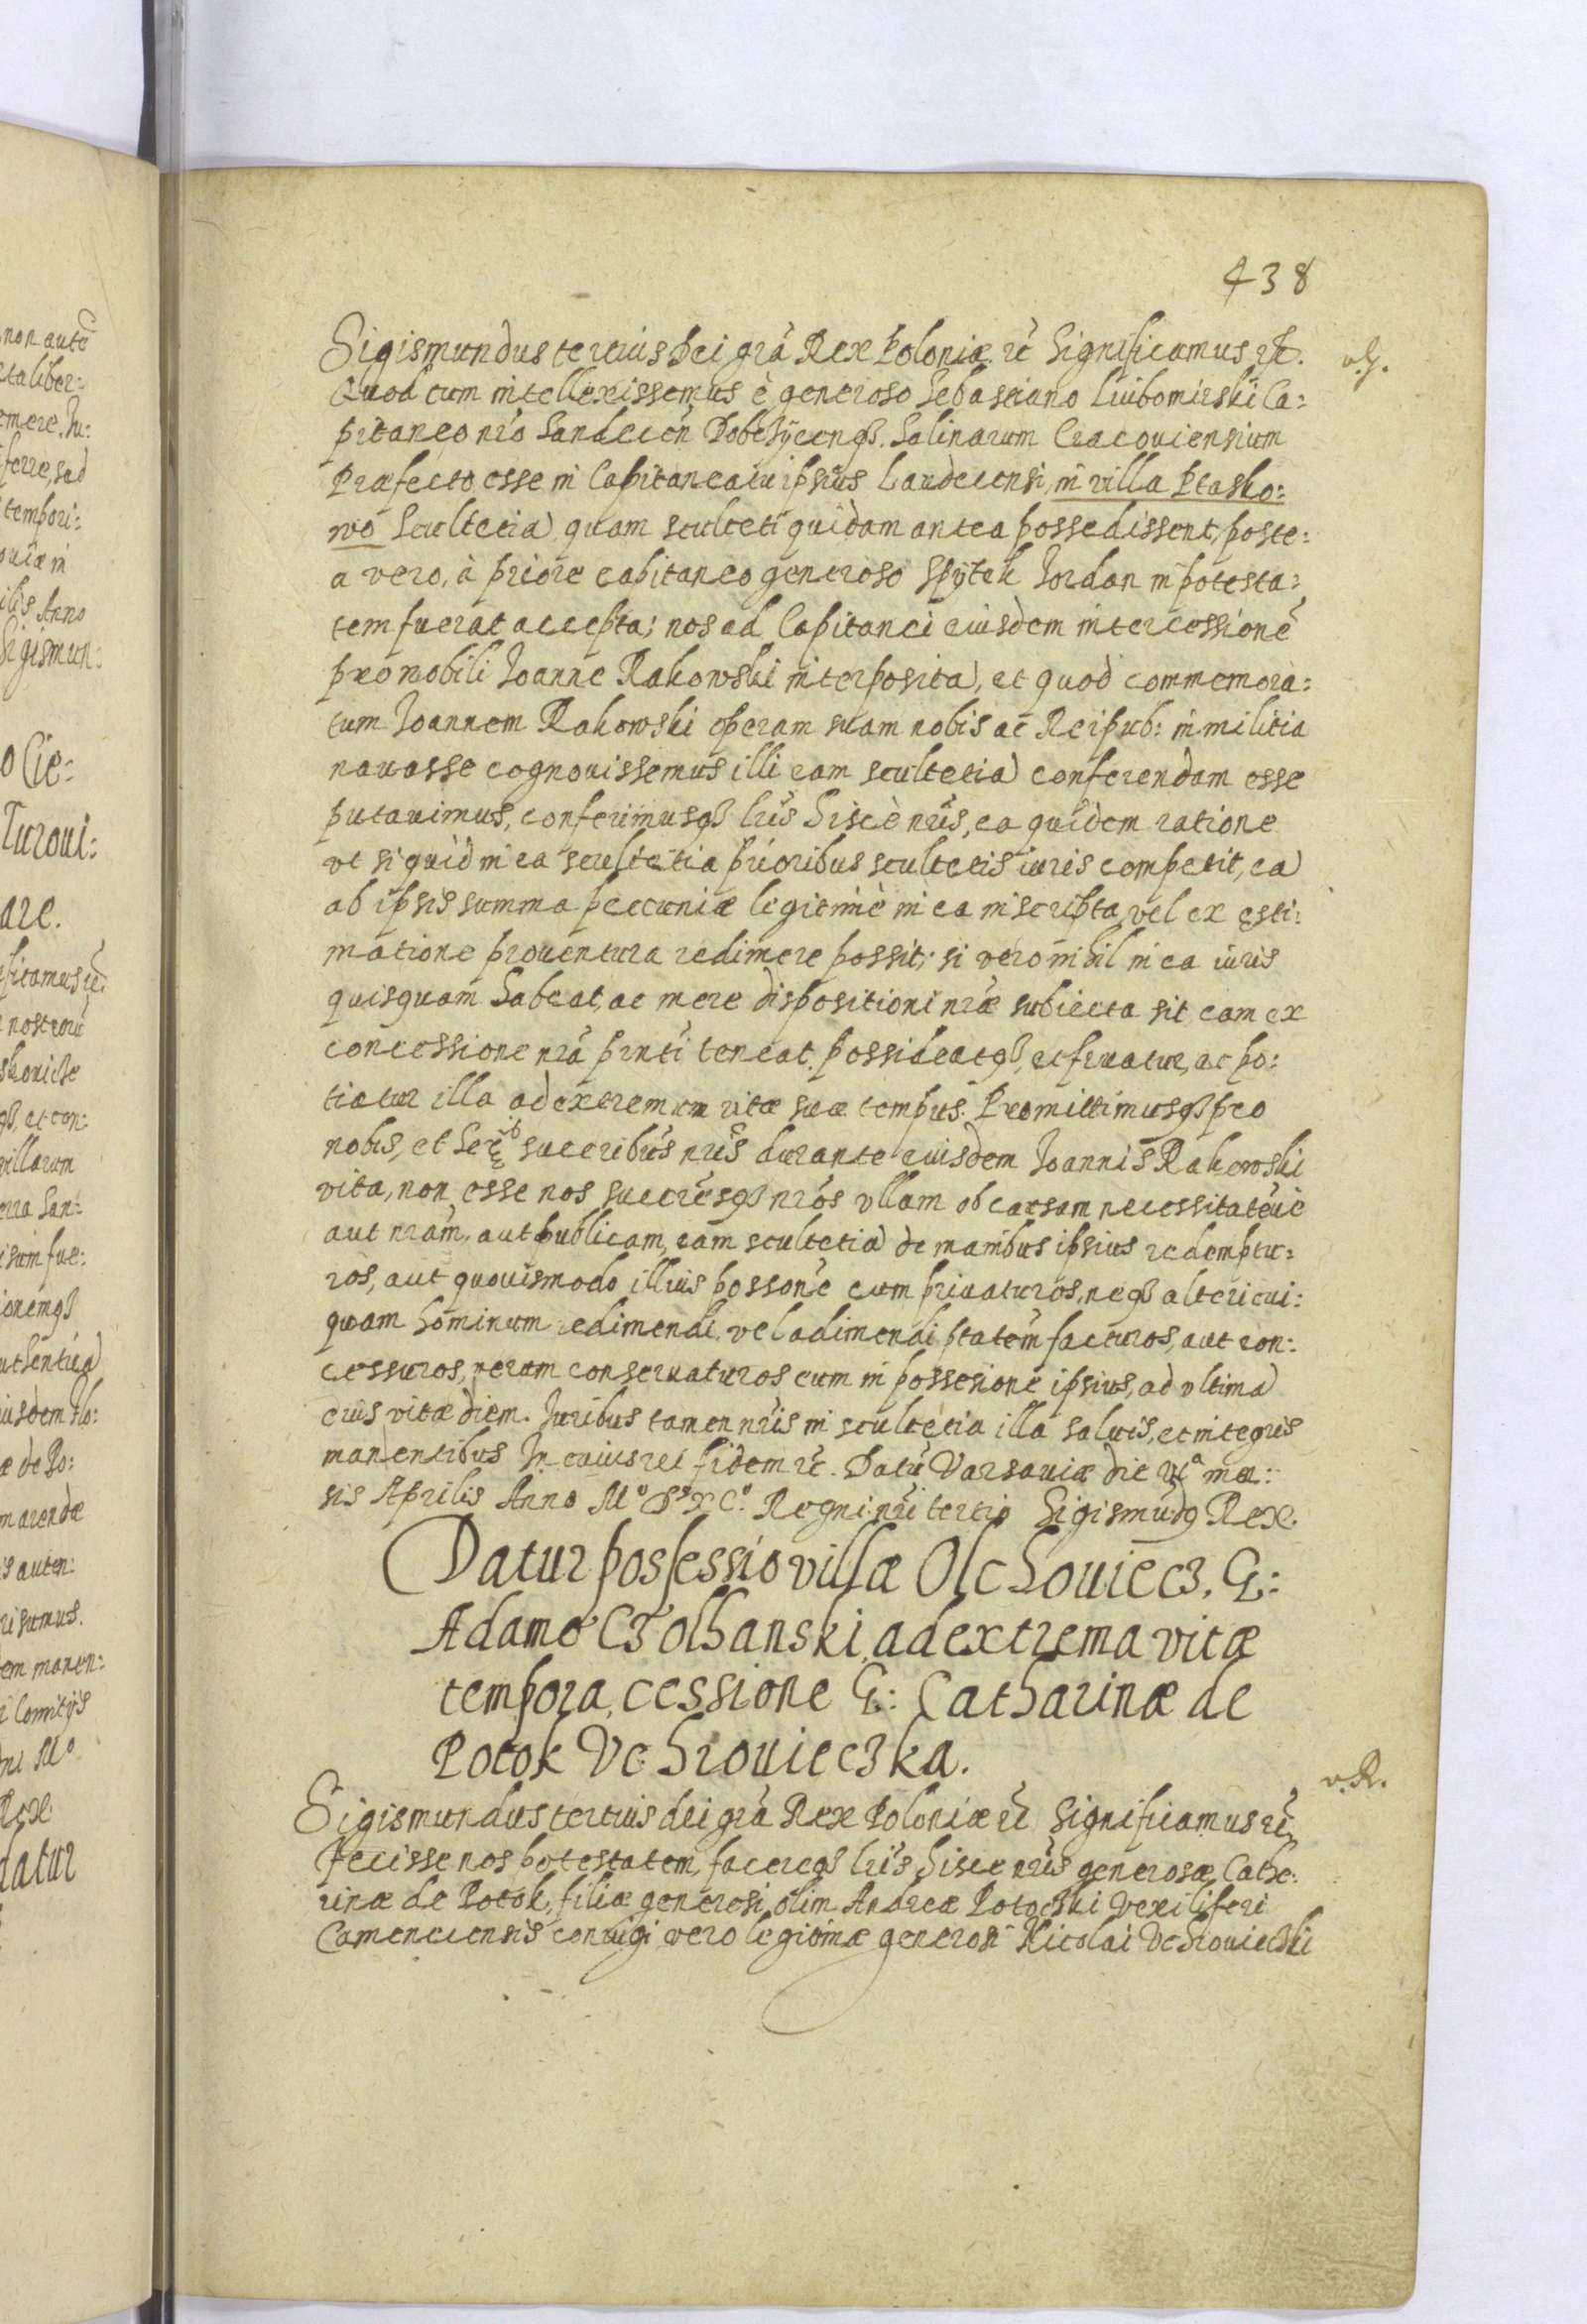 438
Sigismundus tertius Dei grã Rex Poloniæ rc̃ Significamus rc̃. v.G.
Quod cum intellexissemus è generoso Sebastiano Luibomirski Ca:
pitaneo nrõ Sandecen̄ Dobcżycenq₃ Salinarum Cracouiensium
Præfecto esse in Capitaneatu ipsius Sandecensi, in villa Ptasko:
wo Scultetiã quam sculteti quidam antea possedissent, poste:
a vero, à priore capitaneo generoso Spÿtek Jordan in potesta:
tem fuerat accepta; nos ad Capitanei eiusdem intercessionẽ
pro nobili Ioanne Rakowski interpositã, et quod commemora:
tum Ioannem Rakowski operam suam nobis ac Reipub: in militia
nauasse cognouissemus illi eam scultetiã conferendam esse
putauimus, conferimusq₃ lrĩs hiscè nrĩs, ea quidem ratione
vt si quid in ea scultetia prioribus scultetis iuris competit, eã
ab ipsis summa pecuniæ legitimè in ea inscripta, vel ex esti:
matione prouentura redimere possit; si vero nihil in ea iuris
quisquam habeat, ac mere dispositioni nræ subiecta sit eam ex
concessione nrã pñti teneat possideatq₃, et fruatur, ac po:
tiatur illa ad extremum vitæ suæ tempus. Promittimusq₃ pro
nobis, et Serẽ succribũs nrĩs durante eiusdem Ioannis Rakowski
vita, non esse nos succrẽsq₃ nrõs vllam ob causam necessitatẽue
aut nrãm, aut publicam, eam scultetiã de manibus ipsius redemptu:
ros, aut quouismodo illius possonẽ eum priuaturos, neq₃ alteri cui:
quam hominum redimendi, vel adimendi ptatẽm facturos, aut con:
cessuros, verum conseruaturos eum in possesione ipsius, ad vltimã
eius vitæ diem. Iuribus tamen nrĩs in scultetia illa saluis, et integris
manentibus In cuius rei fidem rc̃. Datũ Varsauiæ die vi ᵃ men:
sis Aprilis Anno Mº Dº XCº. Regni nrĩ tertio Sigismũdq Rex.
Datur possessio villæ Olchouiecz, G:
Adamo Czolhanski, ad extrema vitæ
tempora, cessione G: Catharinæ de
Potok Vchrouieczka.
Sigismundus tertius dei grã Rex Poloniæ rc̃ Significamus rc̃ v.R.
Fecisse nos potestatem, facereq₃ lrĩs hisce nrĩs generosæ Cathe:
rinæ de Potok, filiæ generosi olim Andreæ Potocki Vexilliferi
Camenecensis coniugi vero legitimæ generosi Nicolai Vchrouieczki
non autẽ
Sigismun:
Turoui:
datur